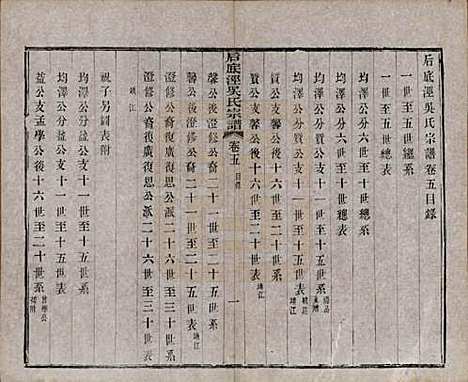 后底涇吳氏宗譜卷五目錄
一世至五世總系
一世至五世總表
均澤公分六世至十世總系
均澤公分六世至十世總表
均澤公分質公支十一世至十五世系
均澤公分質公支十一世至十五世表 靖江
質公支馨公後十六世至二十世系
質公支馨公後十六世至二十世表 靖江
后底涇吳氏宗譜 卷五 目錄 一
馨公後澄修公裔二十一世至二十五世系
馨公後澄修公裔二十一世至二十五世表 靖江
澄修公裔復廣復思公派二十六世至三十世系
澄修公裔復廣復思公派二十六世至三十世表
靖江
祝子另圖表附
均澤公分益公支十一世至十五世系
均澤公分益公支十一世至十五世表
益公支孟學公後十六世至二十世系